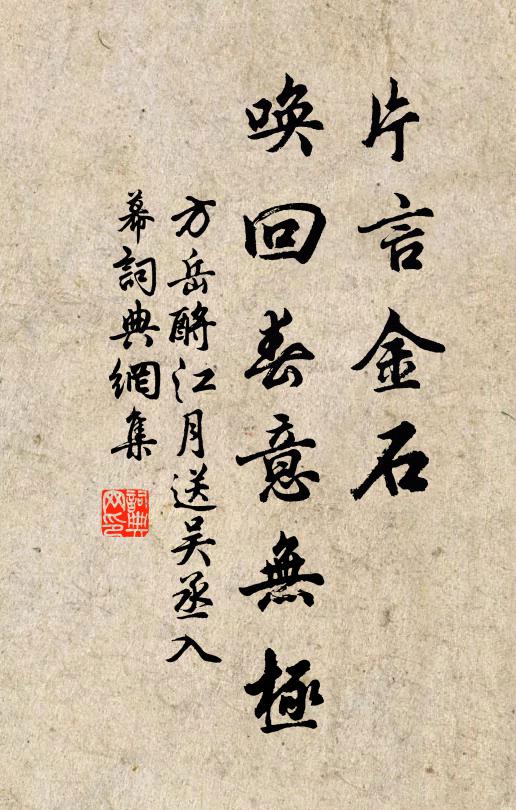 片言金石
喚回春意無極
方岳酹江月送吴丞入
幕詞典網集
詞典
网印